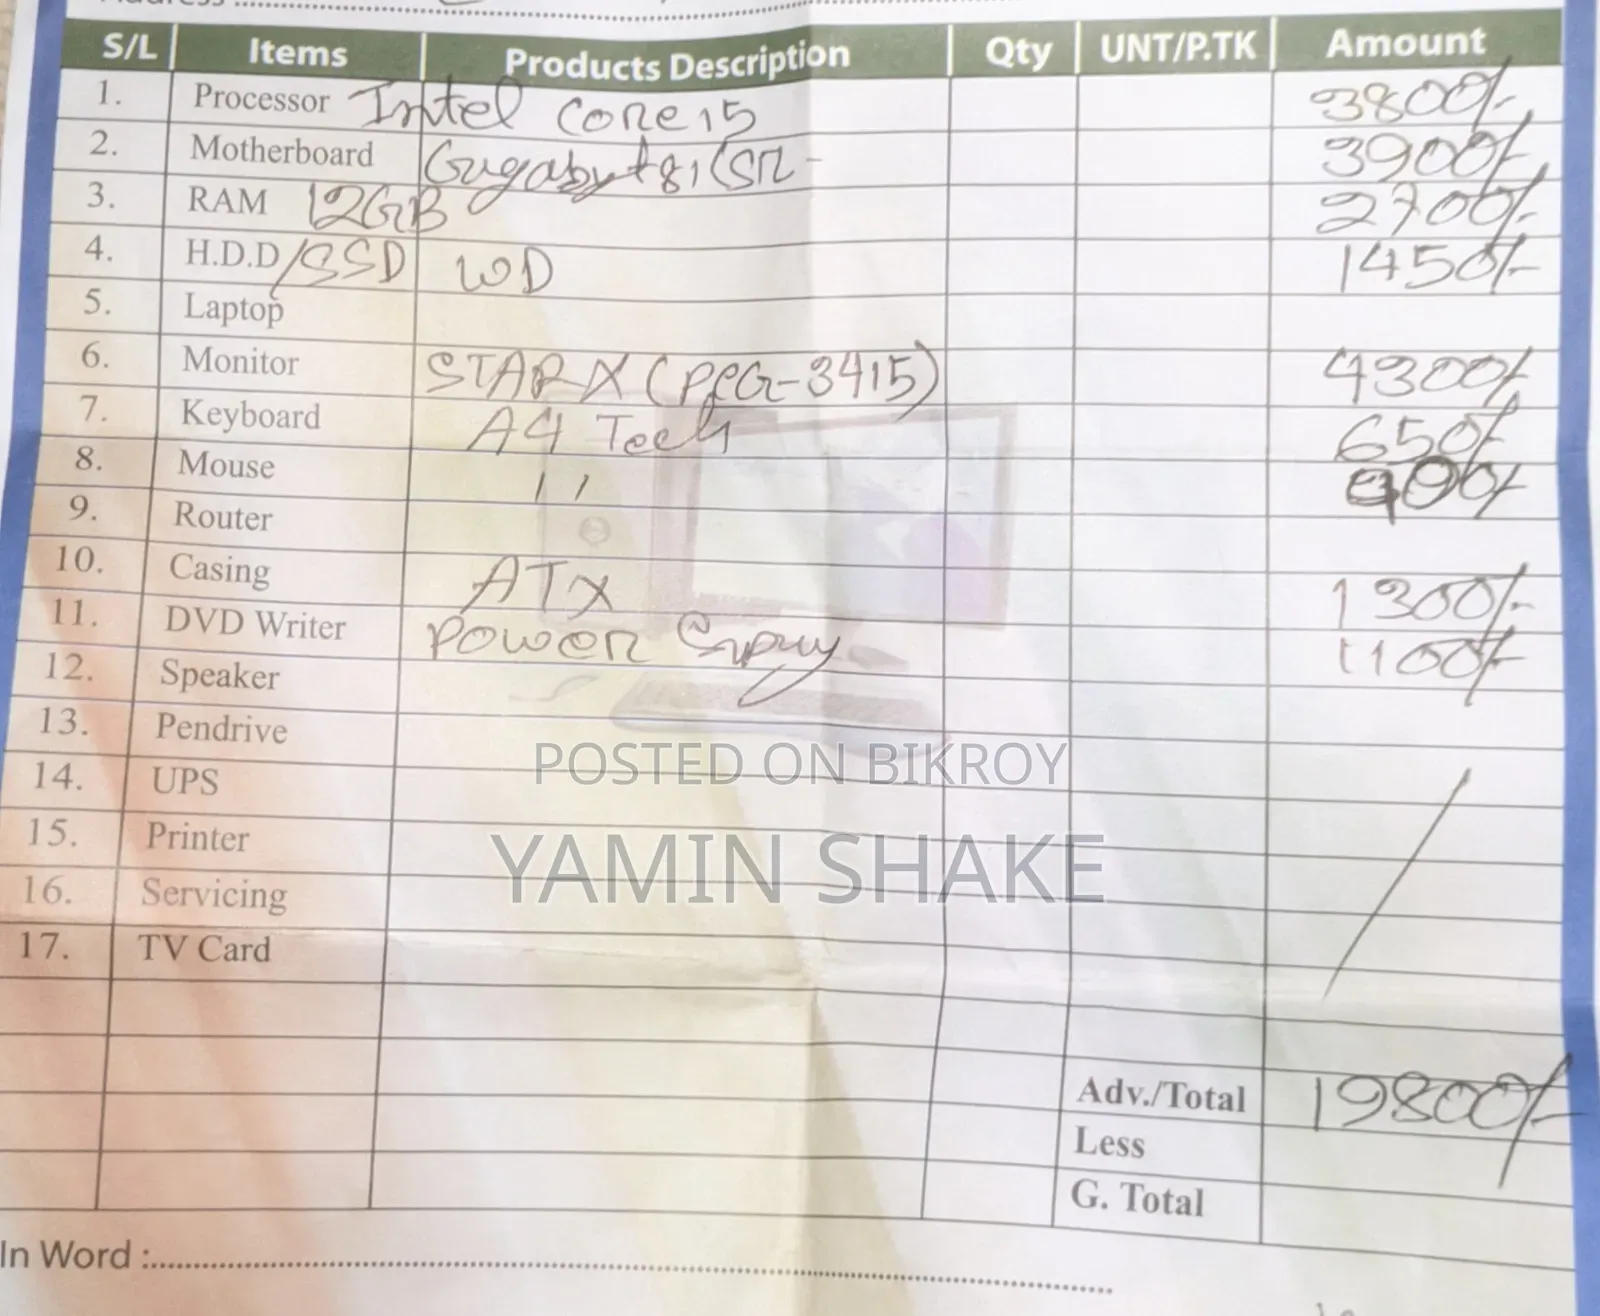 S/L Items Products Description Qty UNT/P.TK Amount
1. Processor Intel core i5 3800/-
2. Motherboard Gugabyt 81 3900/-
3. RAM 12GB 2700/-
4. H.D.D/SSD WD 1450/-
5. Laptop
6. Monitor STAR X 4300/-
7. Keyboard A4 Tech 650/-
8. Mouse 11
9. Router
10. Casing ATX 1300/-
11. DVD Writer Power 1100/-
12. Speaker
13. Pendrive
POSTED ON BIKROY
14. UPS
15. Printer
YAMIN SHAKE
16. Servicing
17. TV Card
Adv./Total 19800/-
Less
G. Total
In Word :